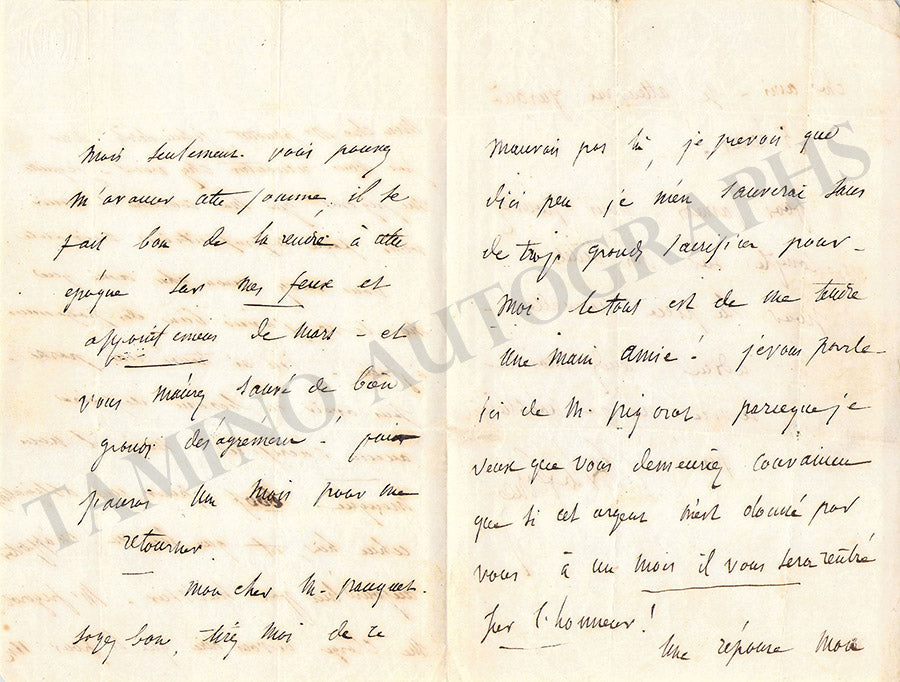 mois seulement. vous pouvez
m'avancer cette somme, il se
fait bon de la rendre à cette
époque sur mes feux et
appointemens de mars - et
vous m'aurez sauvé de bien
grands désagremens !
un mois pour me
retourner.
mon cher M.
soyez bon, tirez moi de ce
mauvais pas là, je prevois que
d'ici peu je m'en sauverai sans
de trop grands sacrifices pour
moi le tout est de me tendre
une main amie ! je vous parle
ici de M. parceque je
veux que vous demeuriez convaincu
que si cet argent m'est donné par
vous à un mois il vous sera rentré
sur l'honneur !
une réponse mon
TAMINO AUTOGRAPHS